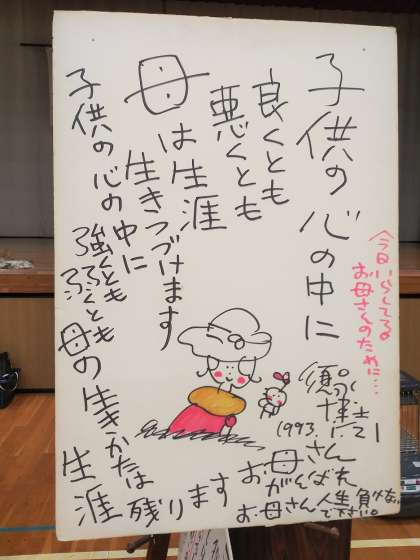 子供の心の中に
良くとも
悪くとも
母は生涯
生きつづけます
子供の心の中に
強くとも
弱くとも
母の生きかたは
生涯残ります
今日いらしてる
お母さんのために…
博士
1993.
お母さん
がんばれ
お母さん